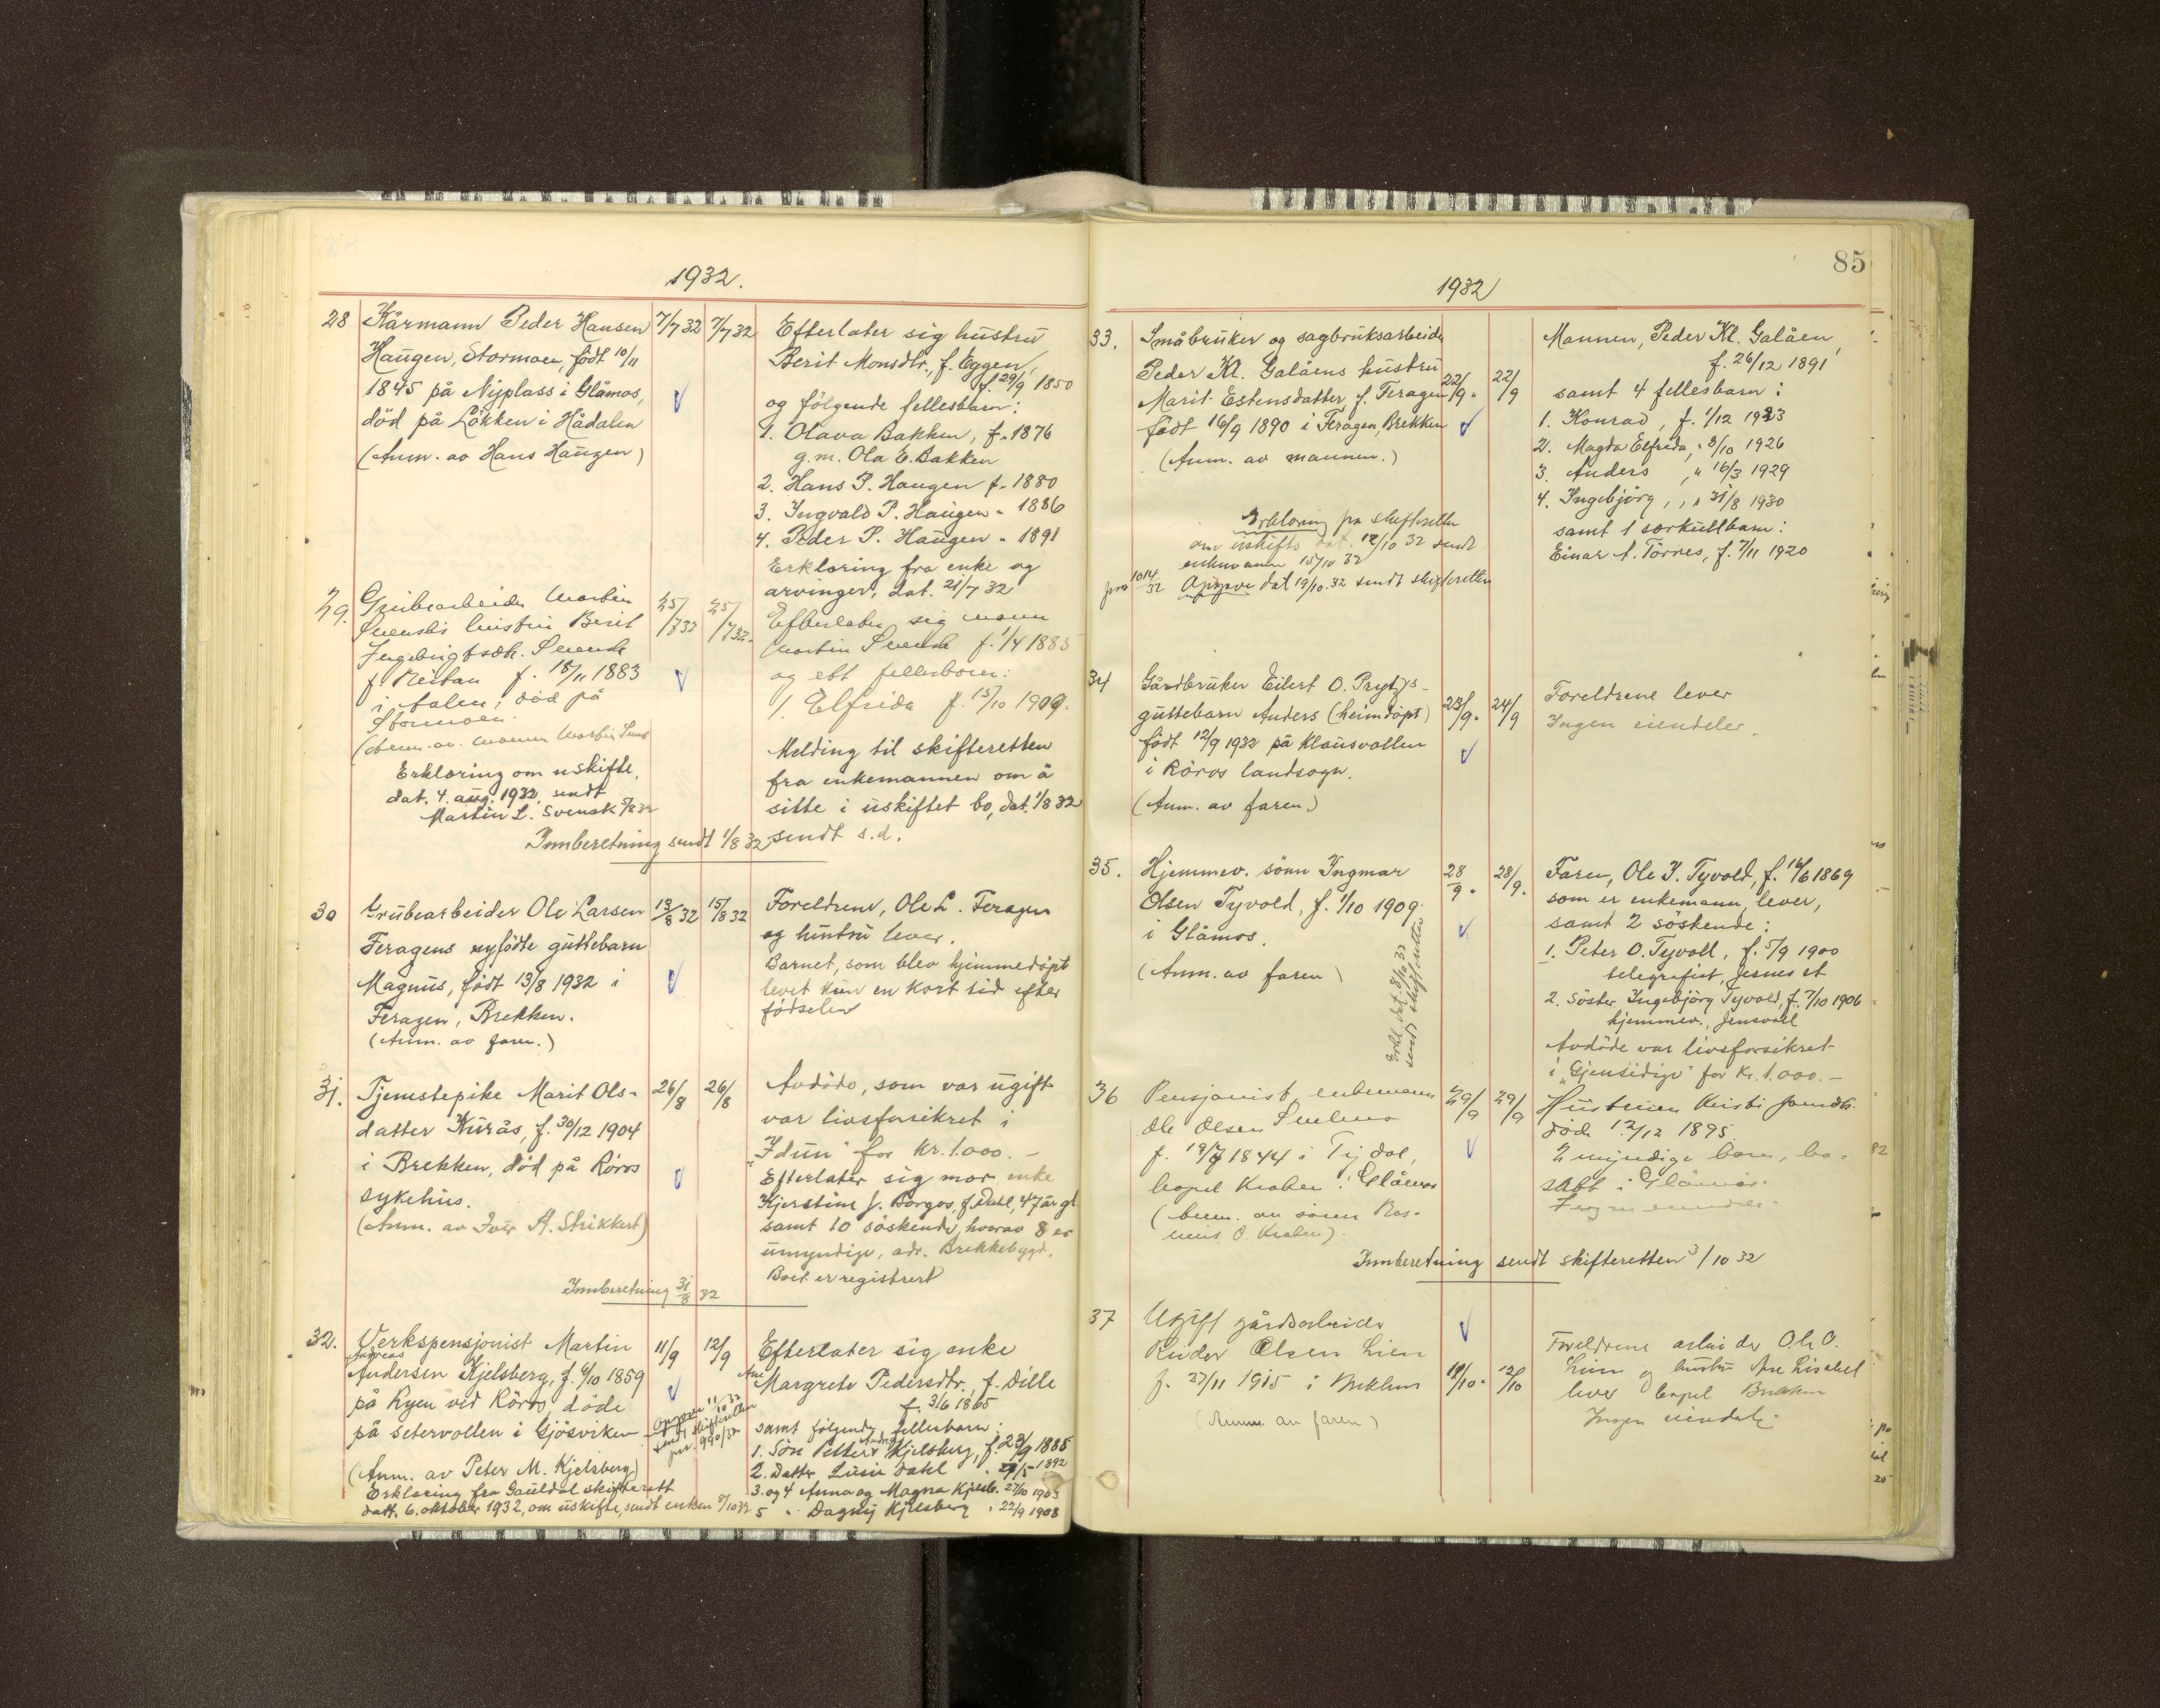 1932.
28 Kårmann Peder Hansen 7/7 32 7/7 32
Haugen, Stormoen, født 10/11
1845 på Nyplass i Glåmos,
död på Løkken i Hådalen
(Anm. av Hans Haugen)
Efterlater sig hustru
Berit Monsdtr., f. Eggen,
f. 29/9 1850
og følgende fellesbarn:
1. Olava Bakken, f. 1876
g.m. Ola E. Bakken
2. Hans P. Haugen f. 1880
3. Ingvald P. Haugen " 1886
4. Peder P. Haugen " 1891
Erklæring fra enke og
arvinger, dat. 21/7 32
29. Grubearbeider Martin 25/7 32 25/7 32.
Svensks hustru Berit
Ingebrigtsdtr. Svensk
f. Reitan f. 18/11 1883
i Aalen, död på
Stormoen.
(Anm. av mannen Martin Svensk
Erklæring om uskifte,
dat. 4. aug. 1932, sendt
Martin L. Svensk 5/8 32
Efterlater sig mann
Martin Svensk f. 1/4 1885
og ett fellesbarn:
1. Elfrida f. 15/10 1909.
Melding til skifteretten
fra enkemannen om å
sitte i uskiftet bo, dat. 1/8 32
sendt s.d.
Innberetning sendt 1/8 32
30 Grubearbeider Ole Larsen 13/8 32 15/8 32
Feragens nyfødte guttebarn
Magnus, født 13/8 1932 i
Feragen, Brekken.
(Anm. av faren.)
Foreldrene, Ole L. Feragen
og hustru lever.
Barnet, som blev hjemmedöpt
levet kun en kort tid efter
fødselen
31. Tjenestepike Marit Ols- 26/8 26/8
datter Kurås, f. 30/12 1904
i Brekken, död på Röros
sykehus.
(Anm. av Iver A. Strikkert)
Avdöde, som var ugift
var livsforsikret i
"Idun" for kr. 1.000.-
Efterlater sig mor enke
Kjerstine J. Borgos, f. Dahl, 47 år gl
samt 10 söskende, hvorav 8 er
umyndige, adr. Brekkebygd.
Boet er registrert
Innberetning 31/8 32
32. Verkspensjonist Martin 11/9 12/9
Andreas
Andersen Kjelsberg, f. 6/10 1859
på Ryen ved Röros, döde
på setervollen i Gjösviken
(Anm. av Peter M. Kjelsberg)
Erklæring fra Gauldal skifterett
datt. 6. oktober 1932, om uskifte, sendt enken 8/10 32
Opgave 11/10 32
sendt skifteretten
jnr. 990/32
Efterlater sig enke
Ane
Margrete Pedersdtr., f. Dille
f. 3/6 1865
samt følgende fellesbarn:
1. Sön Petter Andreas Kjelsberg, f. 23/9 1885
2. Datter Lusie Dahl " 9/5 1892
3. og 4 Anna og Magna Kjelsb. 27/10 1903
5 " Dagny Kjelsberg " 22/9 1908
85
1932
33. Småbruker og sagbruksarbeider
Peder Kl. Galåens hustru 22/9. 22/9
Marit Estensdatter f. Feragen
født 16/9 1890 i Feragen, Brekken
(Anm. av mannen.)
Erklæring fra skifteretten
om uskifte dat. 12/10 32 sendt
enkemannen 15/10 32
jnr 1014/32 Opgave dat 19/10.32 sendt skifteretten
Mannen, Peder Kl. Galåen,
f. 26/12 1891
samt 4 fellesbarn:
1. Konrad, f. 1/12 1923
2. Magda Elfreda, " 3/10 1926
3. Anders, " 16/3 1929
4. Ingebjörg, " 31/8 1930
samt 1 særkullbarn:
Einar A. Törres, f. 7/11 1920
34 Gårdbruker Eilert O. Prytz's
guttebarn Anders (heimdöpt) 23/9. 24/9
født 12/9 1932 på Klausvollen
i Röros landsogn.
(Anm. av faren.)
Foreldrene lever
Ingen eiendeler.
35. Hjemmev. sönn Ingmar 28/9. 28/9.
Olsen Tyvold, f. 1/10 1909
i Glåmos.
(Anm. av faren)
Erkl. dat. 8/10 32
sendt skifteretten
Faren, Ole I. Tyvold, f. 16/6 1869
som er enkemann, lever,
samt 2 söskende:
1. Peter O. Tyvoll, f. 5/9 1900
telegrafist,
2. Söster Ingebjörg Tyvold, f. 7/10 1906
hjemmev., Jensvoll
Avdöde var livsforsikret
i "Gjensidige" for kr. 1.000.-
36 Pensjonist, enkemann 29/9 29/9
Ole Olsen
f. 19/7 1844 i Tydal,
bopel Kroken i Glåmos
(Anm. av sönnen Ras-
mus O. Kroken).
Hustruen Kirsti Jonsdtr.
död 12/12 1895
2 myndige barn, bo-
satt i Glåmos.
Ingen eiendeler.
Innberetning sendt skifteretten 3/10 32
37 Ugift gårdsarbeider
Reidar Olsen Lien
f. 27/11 1915 i Brekken 11/10. 12/10
(Anm. av faren)
Foreldrene arbeider Ole O.
Lien og hustru Ane Lisabet
lever bopel Brekken
Ingen eiendele.